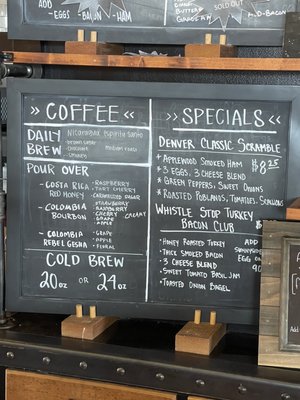 ADD
-EGGS -BACON -HAM
SOLD OUT
ADD -BACON
>> COFFEE <<
DAILY BREW
Nicaragua Espiritu Santo
- brown sugar
- chocolate
- caramel
medium roast
POUR OVER
- COSTA RICA
RED HONEY
- RASPBERRY
- TART CHERRY
- CARAMELIZED SUGAR
- COLOMBIA
BOURBON
- STRAWBERRY
- RASPBERRY
- CHERRY CANDY
- GRAPE
- APPLE
- COLOMBIA
REBEL GEISHA
- GRAPE
- APPLE
- FLORAL
COLD BREW
20oz OR 24oz
>> SPECIALS <<
DENVER CLASSIC SCRAMBLE
* APPLEWOOD SMOKED HAM
$8.25
* 3 EGGS, 3 CHEESE BLEND
* GREEN PEPPERS, SWEET ONIONS
* ROASTED POBLANOS, TOMATOES, SCALLIONS
WHISTLE STOP TURKEY
BACON CLUB
- HONEY ROASTED TURKEY
- THICK SMOKED BACON
- 3 CHEESE BLEND
- SWEET TOMATO BASIL JAM
- TOASTED ONION BAGEL
ADD
EGG ON